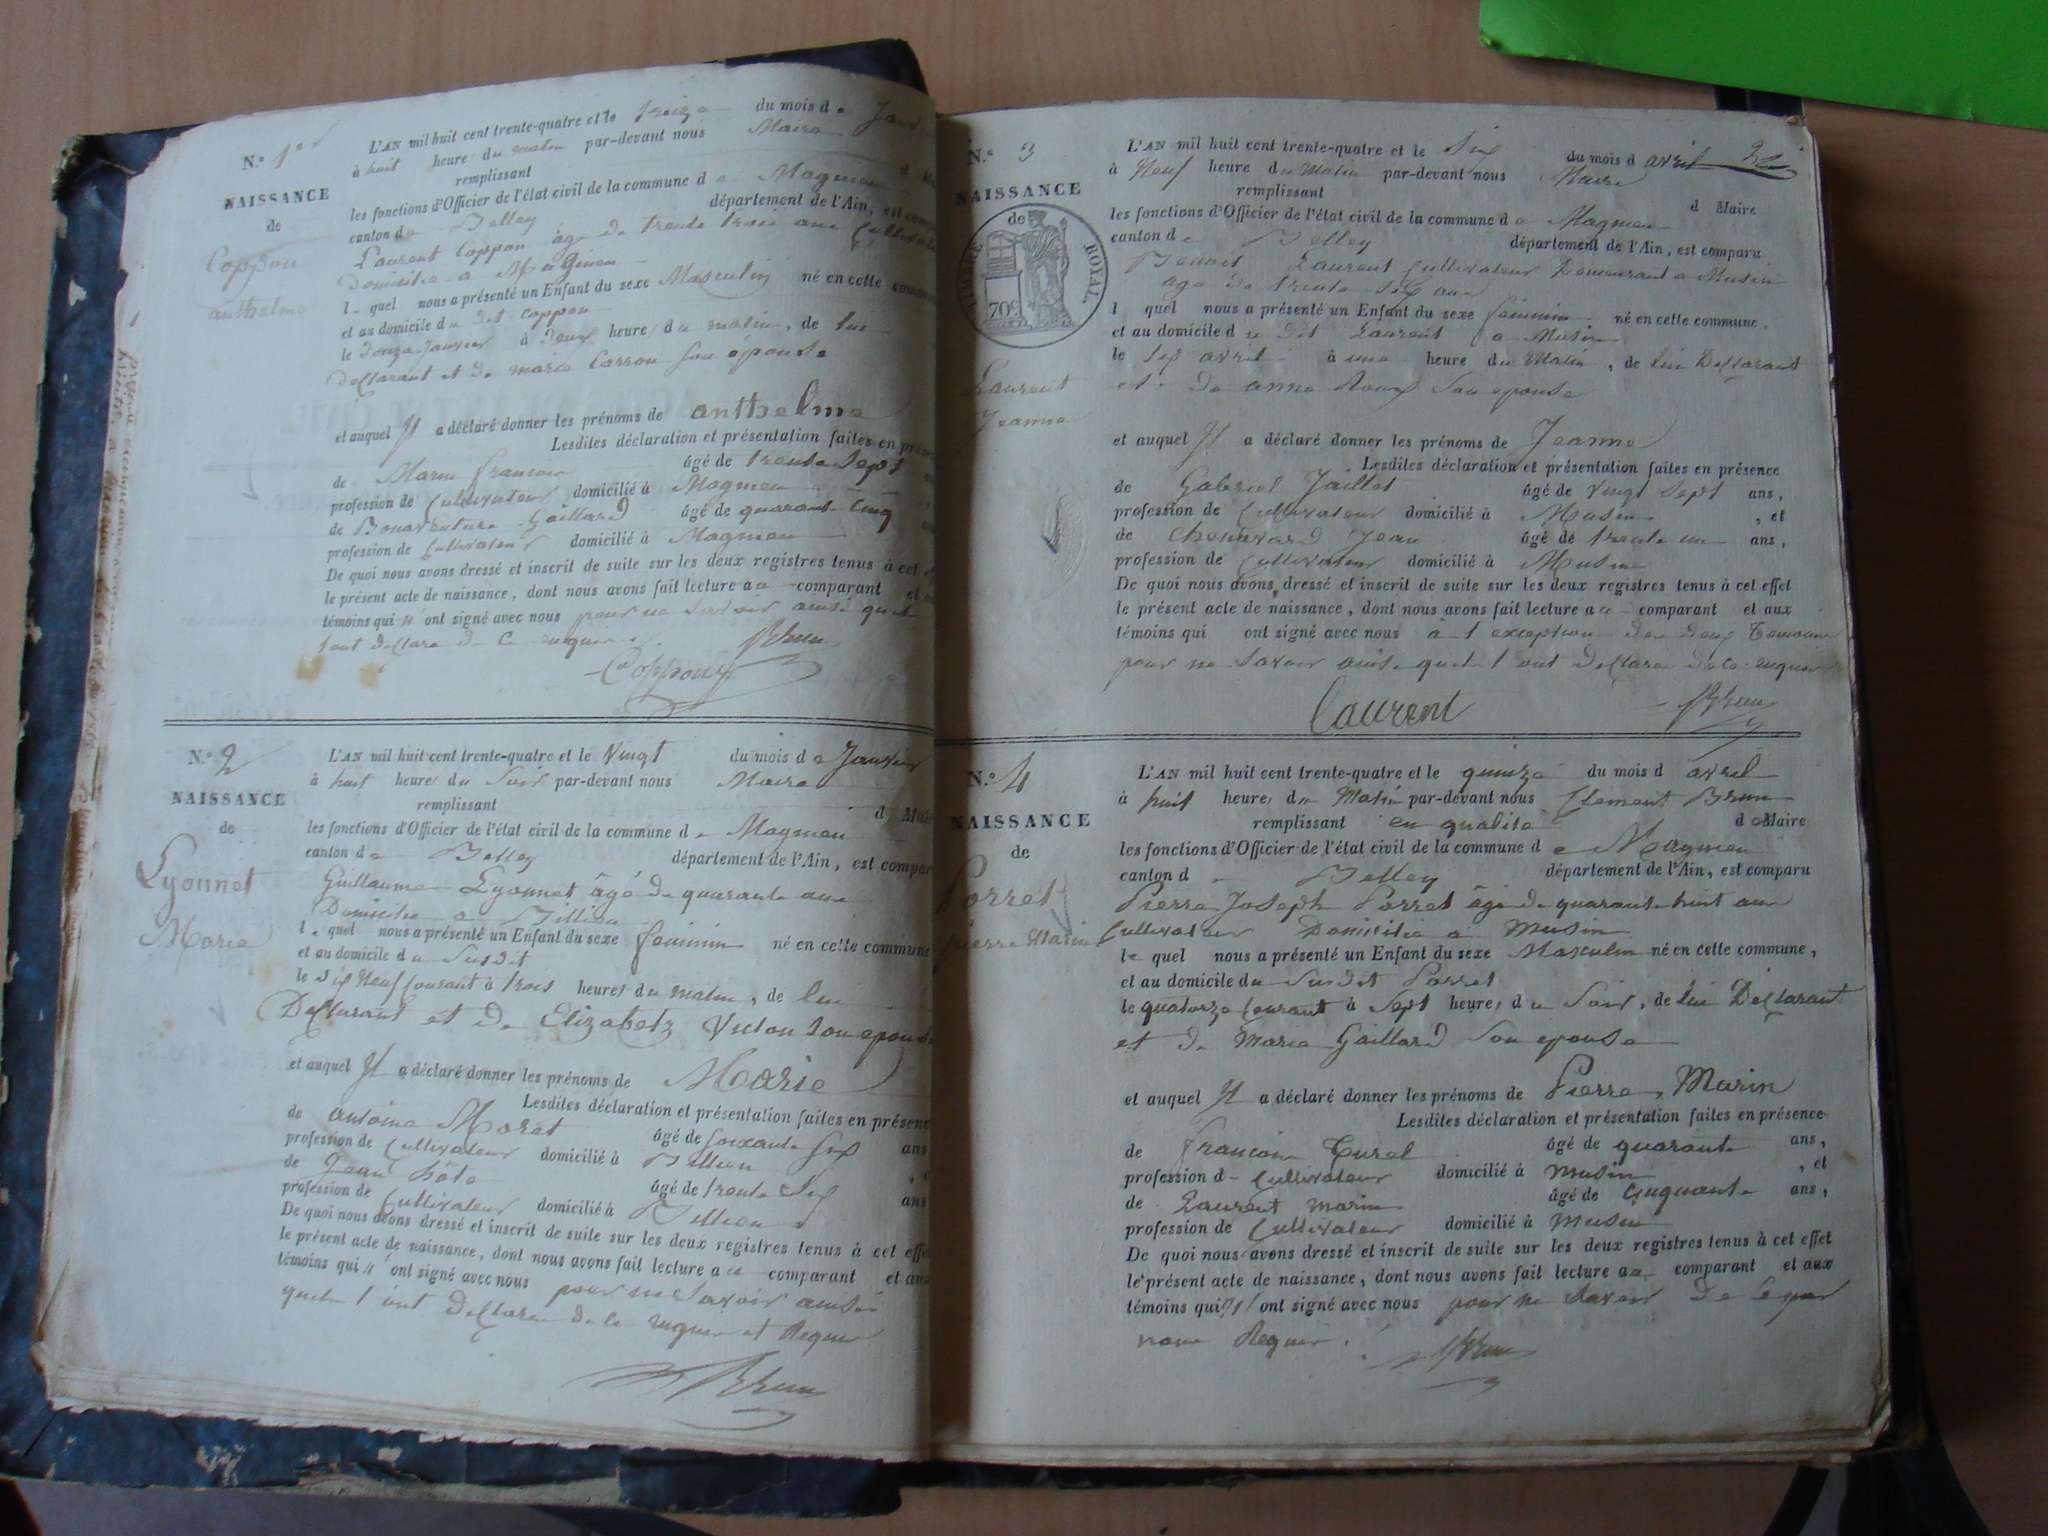 N.º 1er
NAISSANCE
de
Coppon
anthelme
L'AN mil huit cent trente-quatre et le treize du mois de Janv
à huit heure du matin par-devant nous Maire
remplissant d M
les fonctions d'Officier de l'état civil de la commune de Magnieu
canton de Belley département de l'Ain, est comp
Laurent Coppon âgé de trente trois ans Cultivat
Domicilié à Magnieu
lequel nous a présenté un Enfant du sexe Masculin né en cette commune
et au domicile du dit Coppon
le Douze Janvier à Deux heures du matin, de lui
Declarant et de marie Carron Son épouse
et auquel Il a déclaré donner les prénoms de anthelme
Lesdites déclaration et présentation faites en prése
de Marin françois âgé de trente Sept
profession de Cultivateur domicilié à Magnieu
de Bonaventure Gaillard âgé de quarante Cinq
profession de Cultivateur domicilié à Magnieu
De quoi nous avons dressé et inscrit de suite sur les deux registres tenus à cet e
le présent acte de naissance, dont nous avons fait lecture au comparant et au
témoins qui n'ont signé avec nous pour ne Savoir ainsi quil
l'ont declaré de ce enquis
Coppoux Bhun
N.º 2
NAISSANCE
de
Lyonnet
Marie
L'AN mil huit cent trente-quatre et le Vingt du mois de Janvier
à huit heures du Soir par-devant nous Maire
remplissant d Maire
les fonctions d'Officier de l'état civil de la commune de Magnieu
canton de Belley département de l'Ain, est compar
Guillaume Lyonnet âgé De quarante ans
Domicilié à Billieu
lequel nous a présenté un Enfant du sexe feminin né en cette commune
et au domicile du Susdit
le Dix Neuf Courant à trois heures du matin, de lui
Declarant et De Elizabetz Son epouse
et auquel Il a déclaré donner les prénoms de Marie
Lesdites déclaration et présentation faites en présen
de antoine Moret âgé de Soixante Six ans
profession de Cultivateur domicilié à Billieu
de Jean hôte âgé de trente Six ans
profession de Cultivateur domicilié à Billieu
De quoi nous avons dressé et inscrit de suite sur les deux registres tenus à cet effe
le présent acte de naissance, dont nous avons fait lecture au comparant et aux
témoins qui n'ont signé avec nous pour ne Savoir ainsi
quils l'ont Declaré de ce enquis et Requis
Bhun
N.º 3
NAISSANCE
de
TIMBRE ROYAL
70c
Laurent
Jeanne
L'AN mil huit cent trente-quatre et le Six du mois d avril
à Neuf heure du Matin par-devant nous Maire
remplissant d Maire
les fonctions d'Officier de l'état civil de la commune de Magnieu
canton de Belley département de l'Ain, est comparu
Benoit Laurent Cultivateur Demeurant a Musin
âgé De trente Sept ans
l quel nous a présenté un Enfant du sexe feminin né en cette commune,
et au domicile du dit Laurent a Musin
le Six avril à une heure du Matin, de lui Declarant
et de anne Roux Son epouse
et auquel Il a déclaré donner les prénoms de Jeanne
Lesdites déclaration et présentation faites en présence
de Gabriel Jaillet âgé de vingt Sept ans,
profession de Cultivateur domicilié à Musin, et
de Chenavard Jean âgé de trente un ans,
profession de Cultivateur domicilié à Musin
De quoi nous avons dressé et inscrit de suite sur les deux registres tenus à cet effet
le présent acte de naissance, dont nous avons fait lecture au comparant et aux
témoins qui ont signé avec nous à l exception des deux Temoins
pour ne Savoir ainsi quils l ont Declaré de ce enquis
Laurent Bhun
N.º 4
NAISSANCE
de
Porret
pierre Marin
L'AN mil huit cent trente-quatre et le quinze du mois d avril
à huit heures du Matin par-devant nous Clement Brun
remplissant en qualité de Maire
les fonctions d'Officier de l'état civil de la commune de Magnieu
canton de Belley département de l'Ain, est comparu
Pierre Joseph Porret âgé De quarante huit ans
Cultivateur Domicilié à Musin
lequel nous a présenté un Enfant du sexe Masculin né en cette commune,
et au domicile du Susdit Porret
le quatorze Courant à Sept heures du Soir, de lui Declarant
et De Marie Gaillard Son epouse
et auquel Il a déclaré donner les prénoms de Pierre, Marin
Lesdites déclaration et présentation faites en présence
de françois Curel âgé de quarante ans,
profession de Cultivateur domicilié à musin, et
de Laurent marin âgé de Cinquante ans,
profession de Cultivateur domicilié à musin
De quoi nous avons dressé et inscrit de suite sur les deux registres tenus à cet effet
le présent acte de naissance, dont nous avons fait lecture au comparant et aux
témoins qui n'ont signé avec nous pour ne Savoir De Ce par
nous Requis.
Bhun